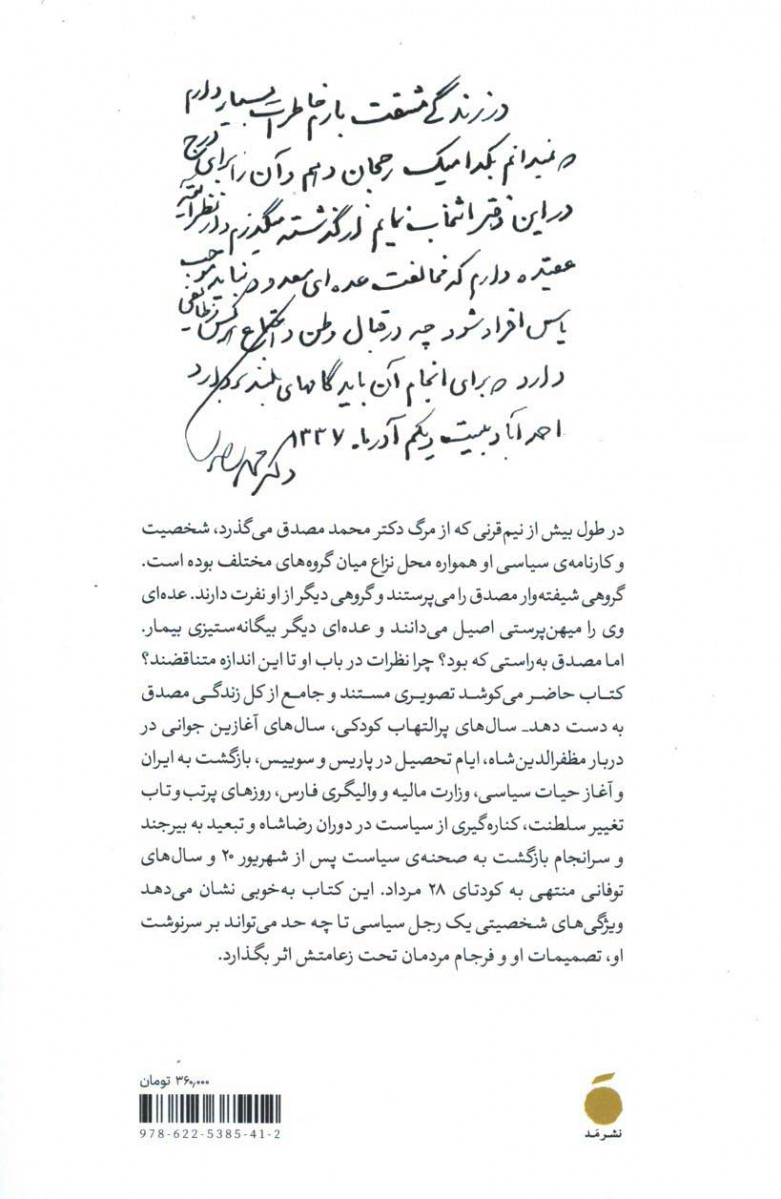 در زندگی مشقت بارم خاطرات بسیار دارم
و نمیدانم بکدامیک رجحان دهم و آن را برای درج
در این دفتر انتخاب نمایم از گذشته میگذرم و از نظر آتیه
عقیده دارم که مخالفت عده‌ای معدود نباید موجب
یاس افراد شود چه در قبال وطن و اجتماع هر کس وظائفی
دارد و برای انجام آن باید گامهای بلندی بردارد
احمدآباد بیست و یکم آذرماه ۱۳۳۷
دکتر محمد مصدق
در طول بیش از نیم‌قرنی که از مرگ دکتر محمد مصدق می‌گذرد، شخصیت
و کارنامه‌ی سیاسی او همواره محل نزاع میان گروه‌های مختلف بوده است.
گروهی شیفته‌وار مصدق را می‌پرستند و گروهی دیگر از او نفرت دارند. عده‌ای
وی را میهن‌پرستی اصیل می‌دانند و عده‌ای دیگر بیگانه‌ستیزی بیمار.
اما مصدق به‌راستی که بود؟ چرا نظرات در باب او تا این اندازه متناقضند؟
کتاب حاضر می‌کوشد تصویری مستند و جامع از کل زندگی مصدق
به دست دهد_ سال‌های پرالتهاب کودکی، سال‌های آغازین جوانی در
دربار مظفرالدین‌شاه، ایام تحصیل در پاریس و سوییس، بازگشت به ایران
و آغاز حیات سیاسی، وزارت مالیه و والیگری فارس، روزهای پرتب‌وتاب
تغییر سلطنت، کناره‌گیری از سیاست در دوران رضاشاه و تبعید به بیرجند
و سرانجام بازگشت به صحنه‌ی سیاست پس از شهریور ۲۰ و سال‌های
توفانی منتهی به کودتای ۲۸ مرداد. این کتاب به‌خوبی نشان می‌دهد
ویژگی‌های شخصیتی یک رجل سیاسی تا چه حد می‌تواند بر سرنوشت
او، تصمیمات او و فرجام مردمان تحت زعامتش اثر بگذارد.
۳۶۰٫۰۰۰ تومان
978-622-5385-41-2
نشر مَد